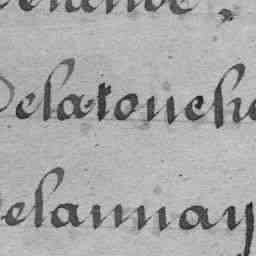 Delatouche
Delaunay